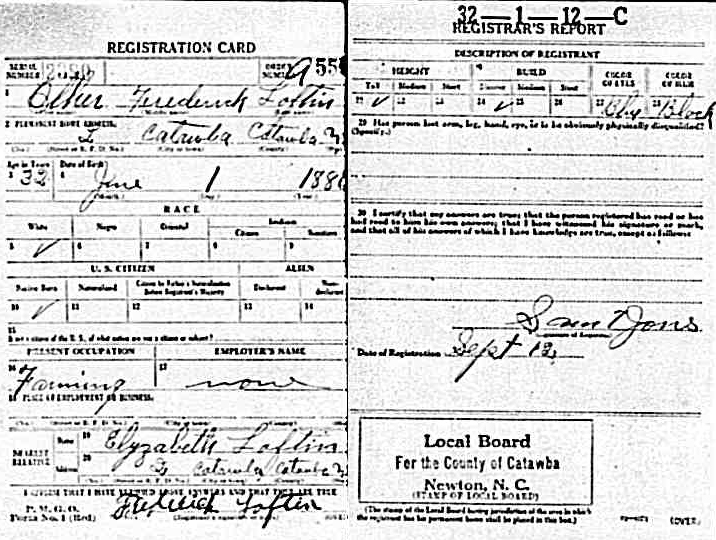 REGISTRATION CARD
SERIAL NUMBER
ORDER NUMBER
1
Frederick Loftin
2 PERMANENT HOME ADDRESS:
Catawba Catawba N
Age in Years Date of Birth
3 32 4 June 1 188
(Month.) (Day.) (Year.)
RACE
White Negro Oriental Indian
Citizen
5 ✓ 6 7 8 9
U. S. CITIZEN ALIEN
Native Born Naturalized Citizen by Father's Naturalization Before Registrant's Majority Declarant Non-declarant
10 ✓ 11 12 13 14
15
If not a citizen of the U. S., of what nation are you a citizen or subject?
PRESENT OCCUPATION EMPLOYER'S NAME
16 Farming 17 none
18 PLACE OF EMPLOYMENT OR BUSINESS:
NEAREST RELATIVE
Name 19 Elyzabeth Loftin
Address 20 Catawba Catawba N
I AFFIRM THAT I HAVE VERIFIED ABOVE ANSWERS AND THAT THEY ARE TRUE
P. M. G. O.
Form No. 1 (Red)
Frederick Loftin
32—1—12—C
REGISTRAR'S REPORT
DESCRIPTION OF REGISTRANT
HEIGHT BUILD COLOR OF EYES COLOR OF HAIR
Tall Medium Short Slender Medium Stout
21 ✓ 22 23 24 ✓ 25 26 27 28 Black
29 Has person lost arm, leg, hand, eye, or is he obviously physically disqualified?
(Specify.)
30 I certify that my answers are true; that the person registered has read or has
had read to him his own answers; that I have witnessed his signature or mark,
and that all of his answers of which I have knowledge are true, except as follows:
Date of Registration Sept 12,
Local Board
For the County of Catawba
Newton, N. C.
(STAMP OF LOCAL BOARD)
(The stamp of the Local Board having jurisdiction of the area in which
the registrant has his permanent home shall be placed in this box.)
(OVER)